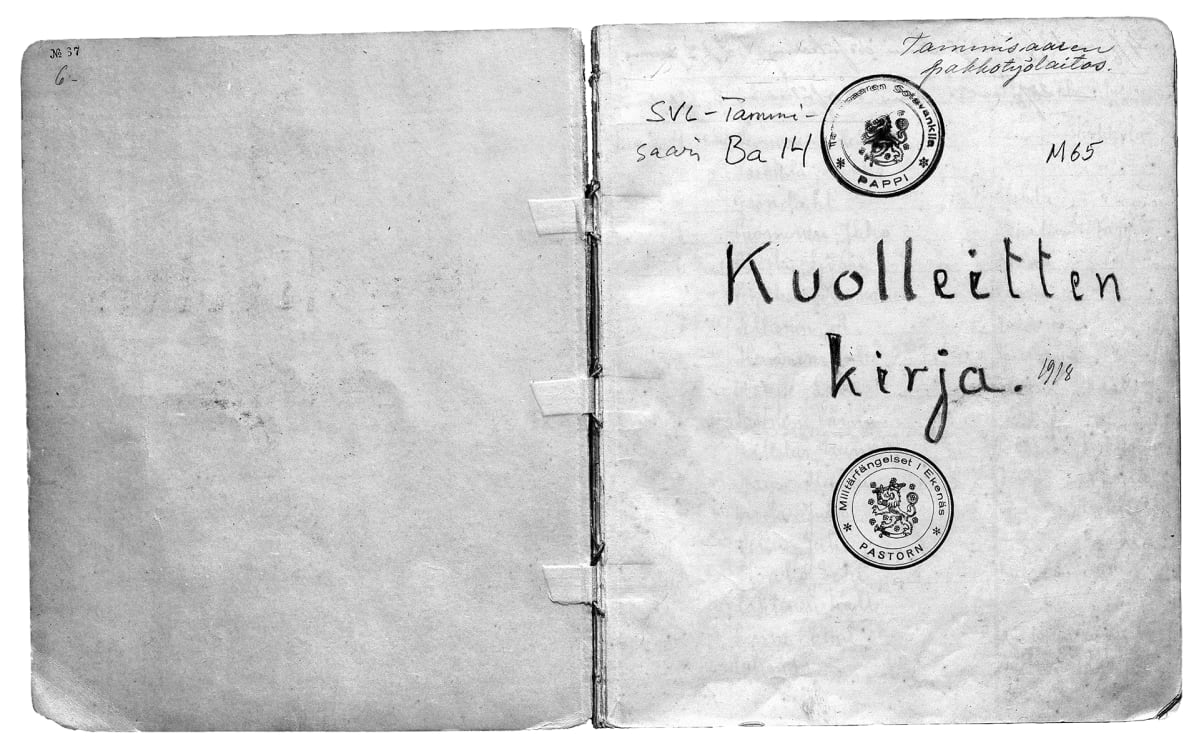 № 67
6-
Tammisaaren
pakkotyölaitos.
SVL-Tammi-
saari Ba 14
M65
saaren Sotavankila
PAPPI
Kuolleitten
kirja.
1918
Militärfängelset i Ekenäs
PASTORN